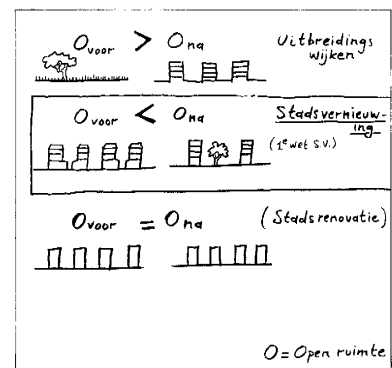 Ovoor > Ona Uitbreidings
wijken
Ovoor < Ona Stadsvernieuw-
ing
(1e wet S.V.)
Ovoor = Ona (Stadsrenovatie)
O = Open ruimte